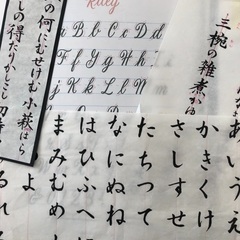 B b C c D d
F f G g H
j K k L l M
三椀の雑煮かゆ
の何にむせけむ小萩はら
しの得たりもさし
あいうえ
かきくけ
さしすせ
たちつて
なにぬね
はひふへ
まみむめ
よ
るれ